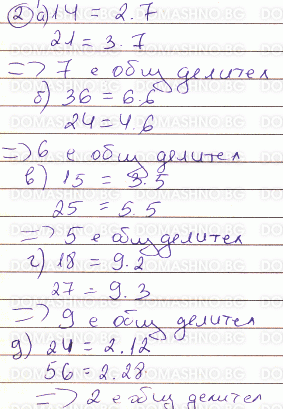 ② а) 14 = 2.7
21 = 3.7
=> 7 е общ делител
б) 36 = 6.6
24 = 4.6
=> 6 е общ делител
в) 15 = 3.5
25 = 5.5
=> 5 е общ делител
г) 18 = 9.2
27 = 9.3
=> 9 е общ делител
д) 24 = 2.12
56 = 2.28
=> 2 е общ делител